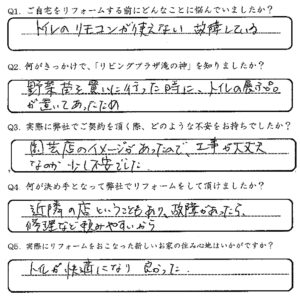 Q1. ご自宅をリフォームする前にどんなことに悩んでいましたか?
トイレのリモコンが使えない 故障している
Q2. 何がきっかけで、「リビングプラザ滝の神」を知りましたか?
野菜苗を買いに行った時に、トイレの展示品
が置いてあったため
Q3. 実際に弊社でご契約を頂く際、どのような不安をお持ちでしたか?
園芸店のイメージがあったので、工事が大丈夫
なのか少し不安でした
Q4. 何が決め手となって弊社でリフォームをして頂けましたか?
近隣の店ということもあり、故障があったら、
修理など頼みやすいから
Q5. 実際にリフォームをおこなった新しいお家の住み心地はいかがですか?
トイレが快適になり 良かった.